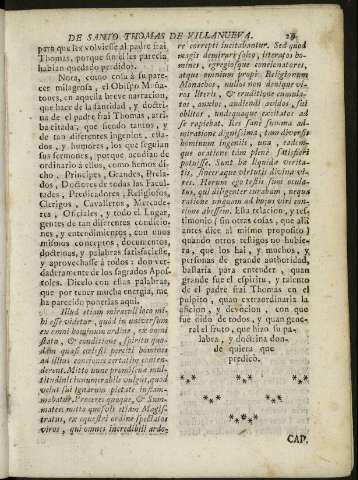 DE SANTO THOMAS DE VILLANUEVA.
para que les volviesse al padre frai
Thomas, porque sin el les parecia
habian quedado perdidos.
Nota, como cosa à su pare-
cer milagrosa, el Obispo Muña-
tones, en aquella breve narracion,
que hace de la santidad, y doctri-
na de el padre frai Thomas, arri-
ba citada; que siendo tantos, y
de tan diferentes ingenios, esta-
dos, y humores, los que seguian
sus sermones, porque acudian de
ordinario à ellos, como hemos di-
cho, Principes, Grandes, Prela-
dos, Doctores de todas las Facul-
tades, Predicadores, Religiosos,
Clerigos, Cavalleros, Mercade-
res, Oficiales, y todo el lugar,
gentes de tan diferentes condicio-
nes, y entendimientos, con unos
mismos conceptos, documentos,
doctrinas, y palabras satisfaciesse,
y aprovechasse à todos, don ver-
daderamente de los sagrados Apos-
toles. Dicelo con estas palabras,
que por tener mucha energia, me
ha parecido ponerlas aqui.
Illud etiam mirabile loco mi-
hi esse videtur, quòd in universum
eu omni hominum ordine, ex omni
statu, & conditione, spiritu quo-
dàm quasi cœlesti perciti homines
ad illius conciones certatim conten-
derent. Mitto nunc promiscuam mul-
titudinis innumerabile vulgus, quod
velut sui ignarum pietate inflam-
mabatur. Proceres quoque, & Sum-
mates multa quosoli etiam Magis-
tratus, ex equestri ordine spectatos
viros, qui omnes incredibili ardo-
re correpti incitabantur. Sed quod
magis demirari soleo, literatos ho-
mines, egregiosque concionatores,
atque omnium propiè Religiorum
Monachos, nullos non denique vi-
ros literis, & eruditione cumula-
tos, auxlos, audiendi avidos, sui
oblitos, undequaque excitatos ad
se rapiebat. Res sanè summa ad-
miratione dignissima, tam diversis
hominum ingeniis, una, eadem-
que oratione tàm plenè satisfieri
potuisse. Sunt hæ liquidæ verita-
tis, sinceraque virtutis divina vi-
res. Horum ego testis sum ocula-
tus, qui diligenter curabam, nequa
ratione unquam ad hujus viri con-
tione abessem. Esta relacion, y tes-
timonio (sin otras cosas, que alli
antes dice al mismo proposito)
quando otros testigos no hubie-
ra, que los hai, y muchos, y
personas de grande authoridad,
bastaria para entender, quan
grande fue el espiritu, y talento
de el padre frai Thomas en el
pulpito, quan extraordinaria la
aficion, y devocion, con que
fue oido de todos, y quan gene-
ral el fruto, que hizo su pa-
labra, y doctrina don-
de quiera que
predicò.
CAP.